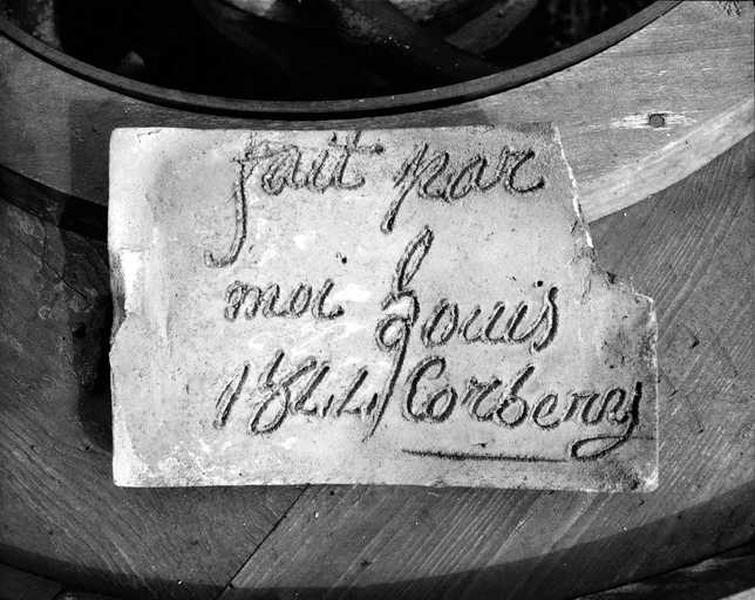 fait par
moi Louis
1844 Corbeny